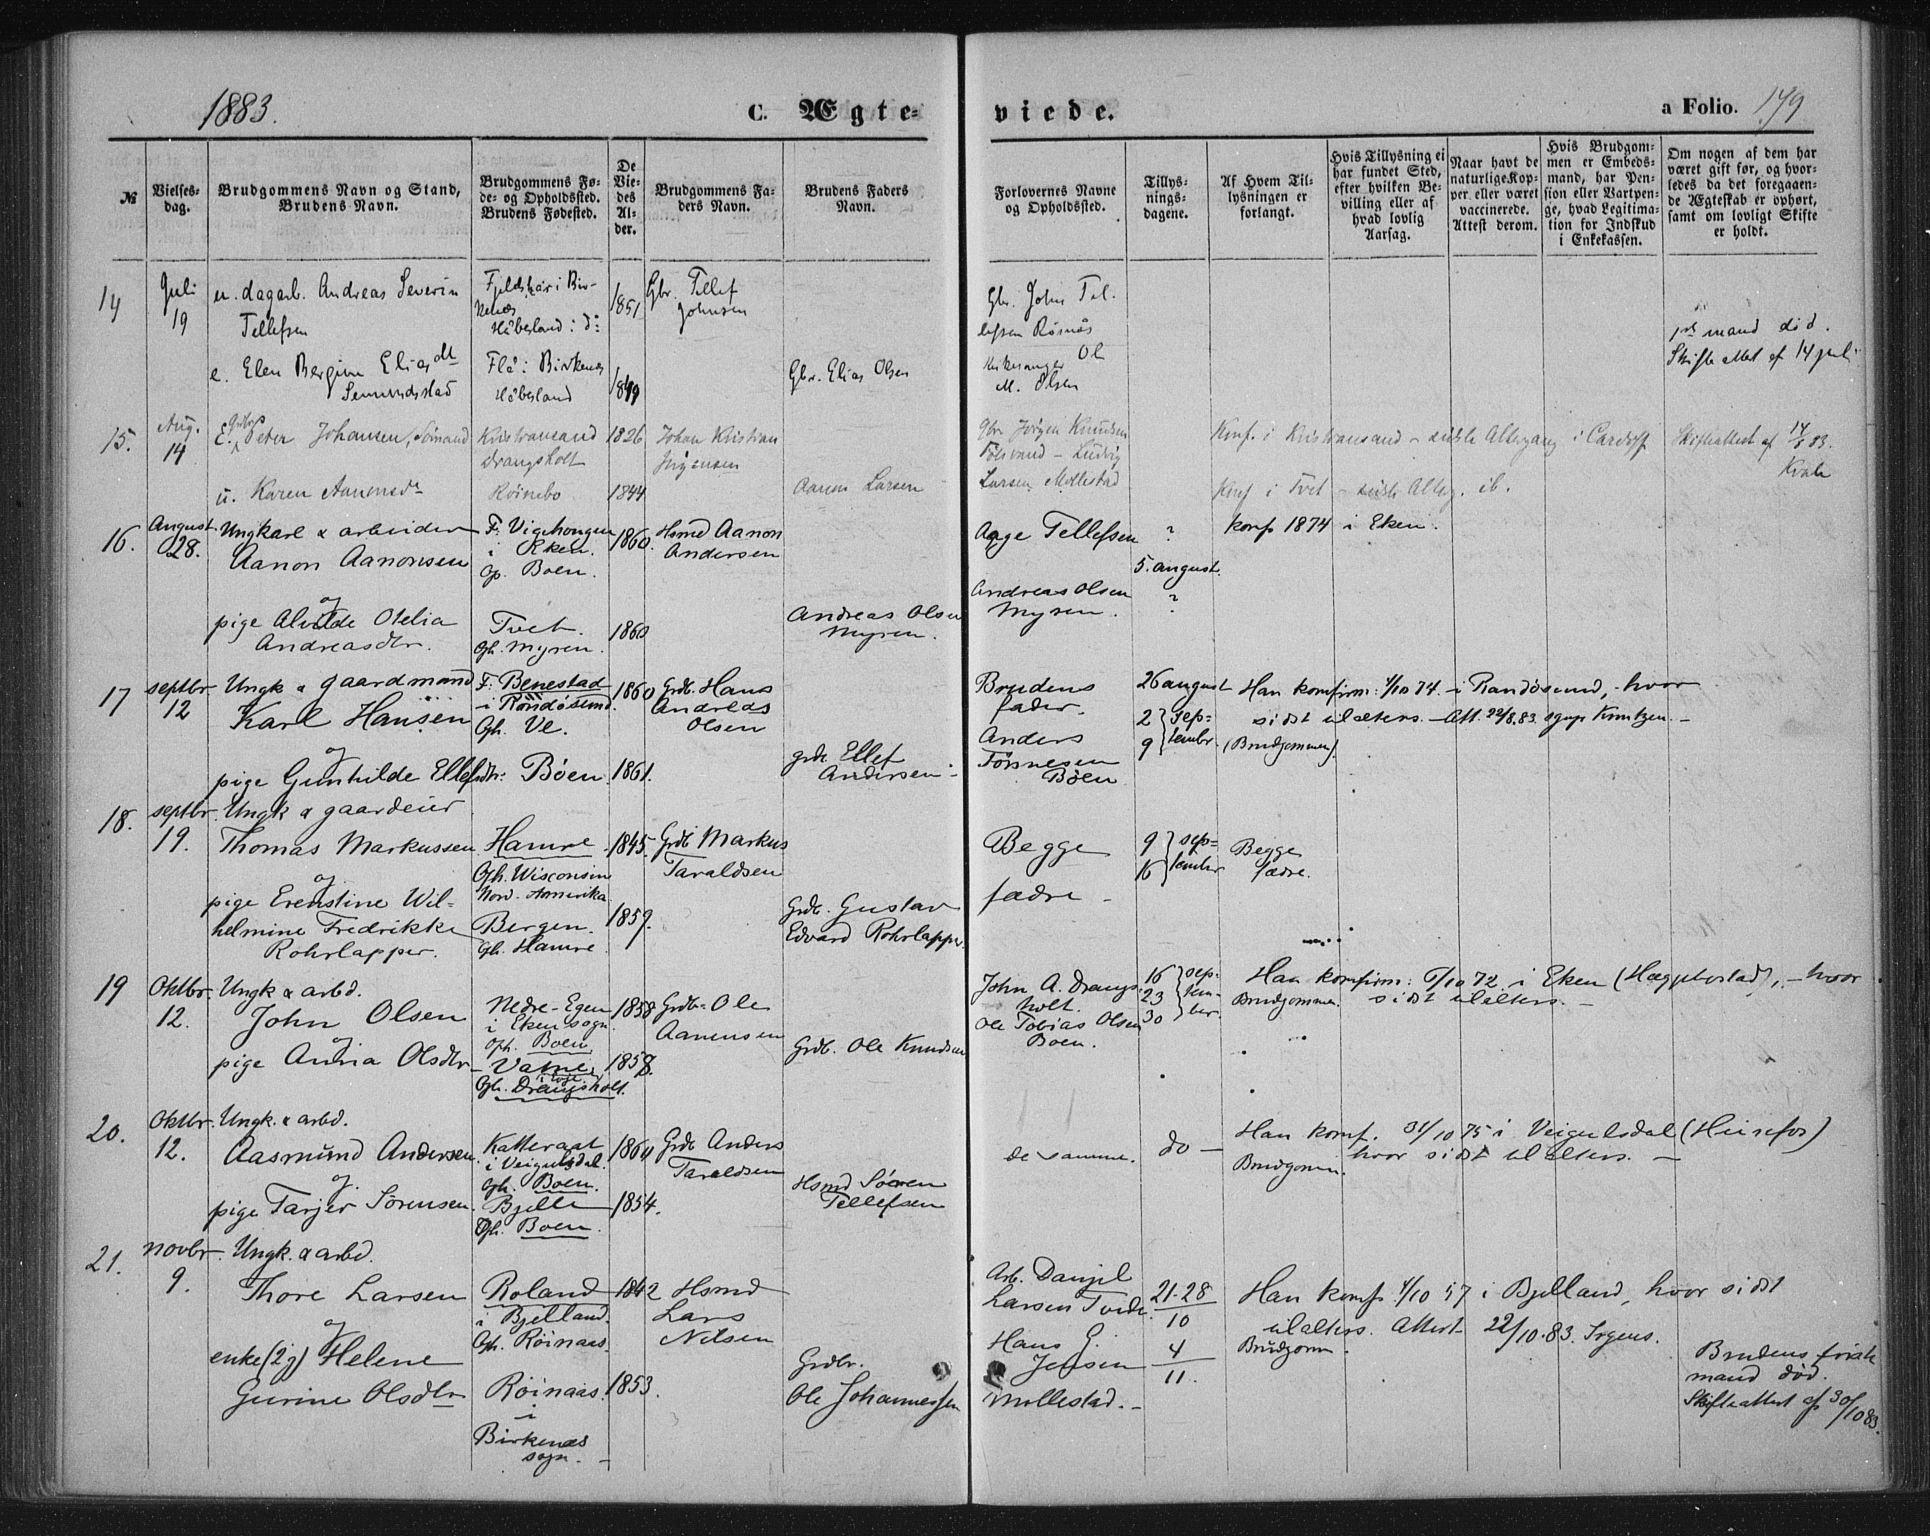 1883.
C. Ægte-
viede.
a Folio. 179
№
Vielses-
dag.
Brudgommens Navn og Stand,
Brudens Navn.
Brudgommens Fø-
de- og Opholdssted.
Brudens Fødested.
De
Vie-
des
Al-
der.
Brudgommens Fa-
ders Navn.
Brudens Faders
Navn.
Forlovernes Navne
og Opholdssted.
Tillys-
nings-
dagene.
Af Hvem Til-
lysningen er
forlangt.
Hvis Tillysning ei
har fundet Sted,
efter hvilken Be-
villing eller af
hvad lovlig
Aarsag.
Naar havt de
naturlige Kop-
per eller været
vaccinerede.
Attest derom.
Hvis Brudgom-
men er Embeds-
mand, har Pen-
sion eller Vartpen-
ge, hvad Legitima-
tion for Indskud
i Enkekassen.
Om nogen af dem har
været gift før, og hvor-
ledes da det foregaaen-
de Ægteskab er ophørt,
samt om lovligt Skifte
er holdt.
14
Juli
19
u. dagarb. Andreas Severin
Tellefsen
e. Elen Bergine Elias dtr
Semundstad
i Bir-
kenes
Håbesland i do:
Flå i Birkenes
Håbesland
1851
1849
Gbr. Tellef
Johnsen
Gbr. Elias Olsen
Gbr. John Tel-
lefsen Røsnås
Kirkesanger Ol
M. Olsen
mand død.
Skifteattest af 14 juli
15.
Aug.
14
E. Peter Johansen, Sømand
u. Karen Aanensdr
Kristiansand
Drangsholt
Røinebo
1826
1844
Johan Kristian
Jørgensen
Aanon Larsen
Gbr Jørgen Knudsen
Ludvig
Larsen Mollestad
Konf. i Kristiansand – sidste Altergang i Cardiff
Konf i Tvet – sidste Alterg. ib.
Skifteattest af 14/8 83.
16.
August
28.
Ungkarl & arbeider
Aanon Aanonsen
og
pige Alvilde Otelia
Andreasdtr.
F. Vigehougen
i Eken.
Op. Boen.
Tvet.
Oph. Myren.
1860.
1860
Hsmd Aanon
Andersen
Andreas Olsen
Myren.
Aage Tellefsen
Andreas Olsen
Myren.
?
5. august.
?
konf 1874 i Eken.
17
septbr
12
Ungk & gaardmand
Karl Hansen
og
pige Gunhilde Ellefsdtr:
F. Benestad
i Randøsund.
Oph. Ve.
Boen
1860
1861.
Grdb. Hans
Andreas
Olsen
grdb. Ellef
Andersen –
Brudens
fader.
Anders
Tønnesen
Boen
26 august
2 } sep=
9 } tember
Han konfirm: 4/10 74. i Randøsund, – hvor
sidst til alters. – Att. 22/8. 83. sgnp Knutzen. –
(Brudgommen).
18.
septbr.
19.
Ungk & gaardeier
Thomas Markussen
og
pige Erenstine Wil-
helmine Fredrikke
Rohrlapper.
Hamre
Oph. Wisconsin
Nord. Amerika
Bergen.
Oph. Hamre.
1845.
1859.
Grdb. Markus
Taraldsen
Grdb. Gustav
Edvard Rohrlapper.
Begge
fædre –
9 } sep=
16 } tember
Begge
fædre.
19
Oktbr.
12.
Ungk & arbd.
John Olsen
og
pige Anna Olsdtr
Nedre-Egen
i Eken sogn.
Oph. Boen
Vatne
Oph. Drangsholt.
1858
1858.
Grdb. Ole
Aanensen
Grdb. Ole Knudsen
John A. Drangs-
holt.
Ole Tobias Olsen
Boen.
16 } sep-
23 } tem-
30 } ber.
Han konfirm: 6/10 72. i Eken (Hæggebostad), – hvor
Brudgommen. sidst til alters. –
20.
Oktbr.
12.
Ungk. & arbd.
Aasmund Andersen
og
pige Tarjer Sørensen.
Katteraat
i Veigusdal.
Oph. Boen.
Bjelle
Oph. Boen.
1864
1854.
Grdb Anders
Taraldsen
Hsmd Søren
Tellefsen
de samme.
do –
Han konf. 31/10 75 i Veigulsdal (Heirefos)
hvor sidst til alters. –
Brudgom.
21.
Novbr.
9.
Ungk. & arbd.
Thore Larsen
og
enke (2 g) Helene
Gurine Olsdtr
Roland
i Bjelland.
Oph. Røinaas.
Røinaas.
i
Birkenæs
sogn. –
1842
1853.
Hsmd
Lars
Nilsen
Grdbr.
Ole Johannessen
Arb. Danjel
Larsen Tvide
Hans G.
Jensen
Mollestad. –
21-28
10
4
11.
Han konf 4/10 57 i Bjelland, hvor sidst
til alters. Attest 22/10. 83. Irgens.
Brudgom.
Brudens første
mand død.
Skifteattest af 30/10 83.